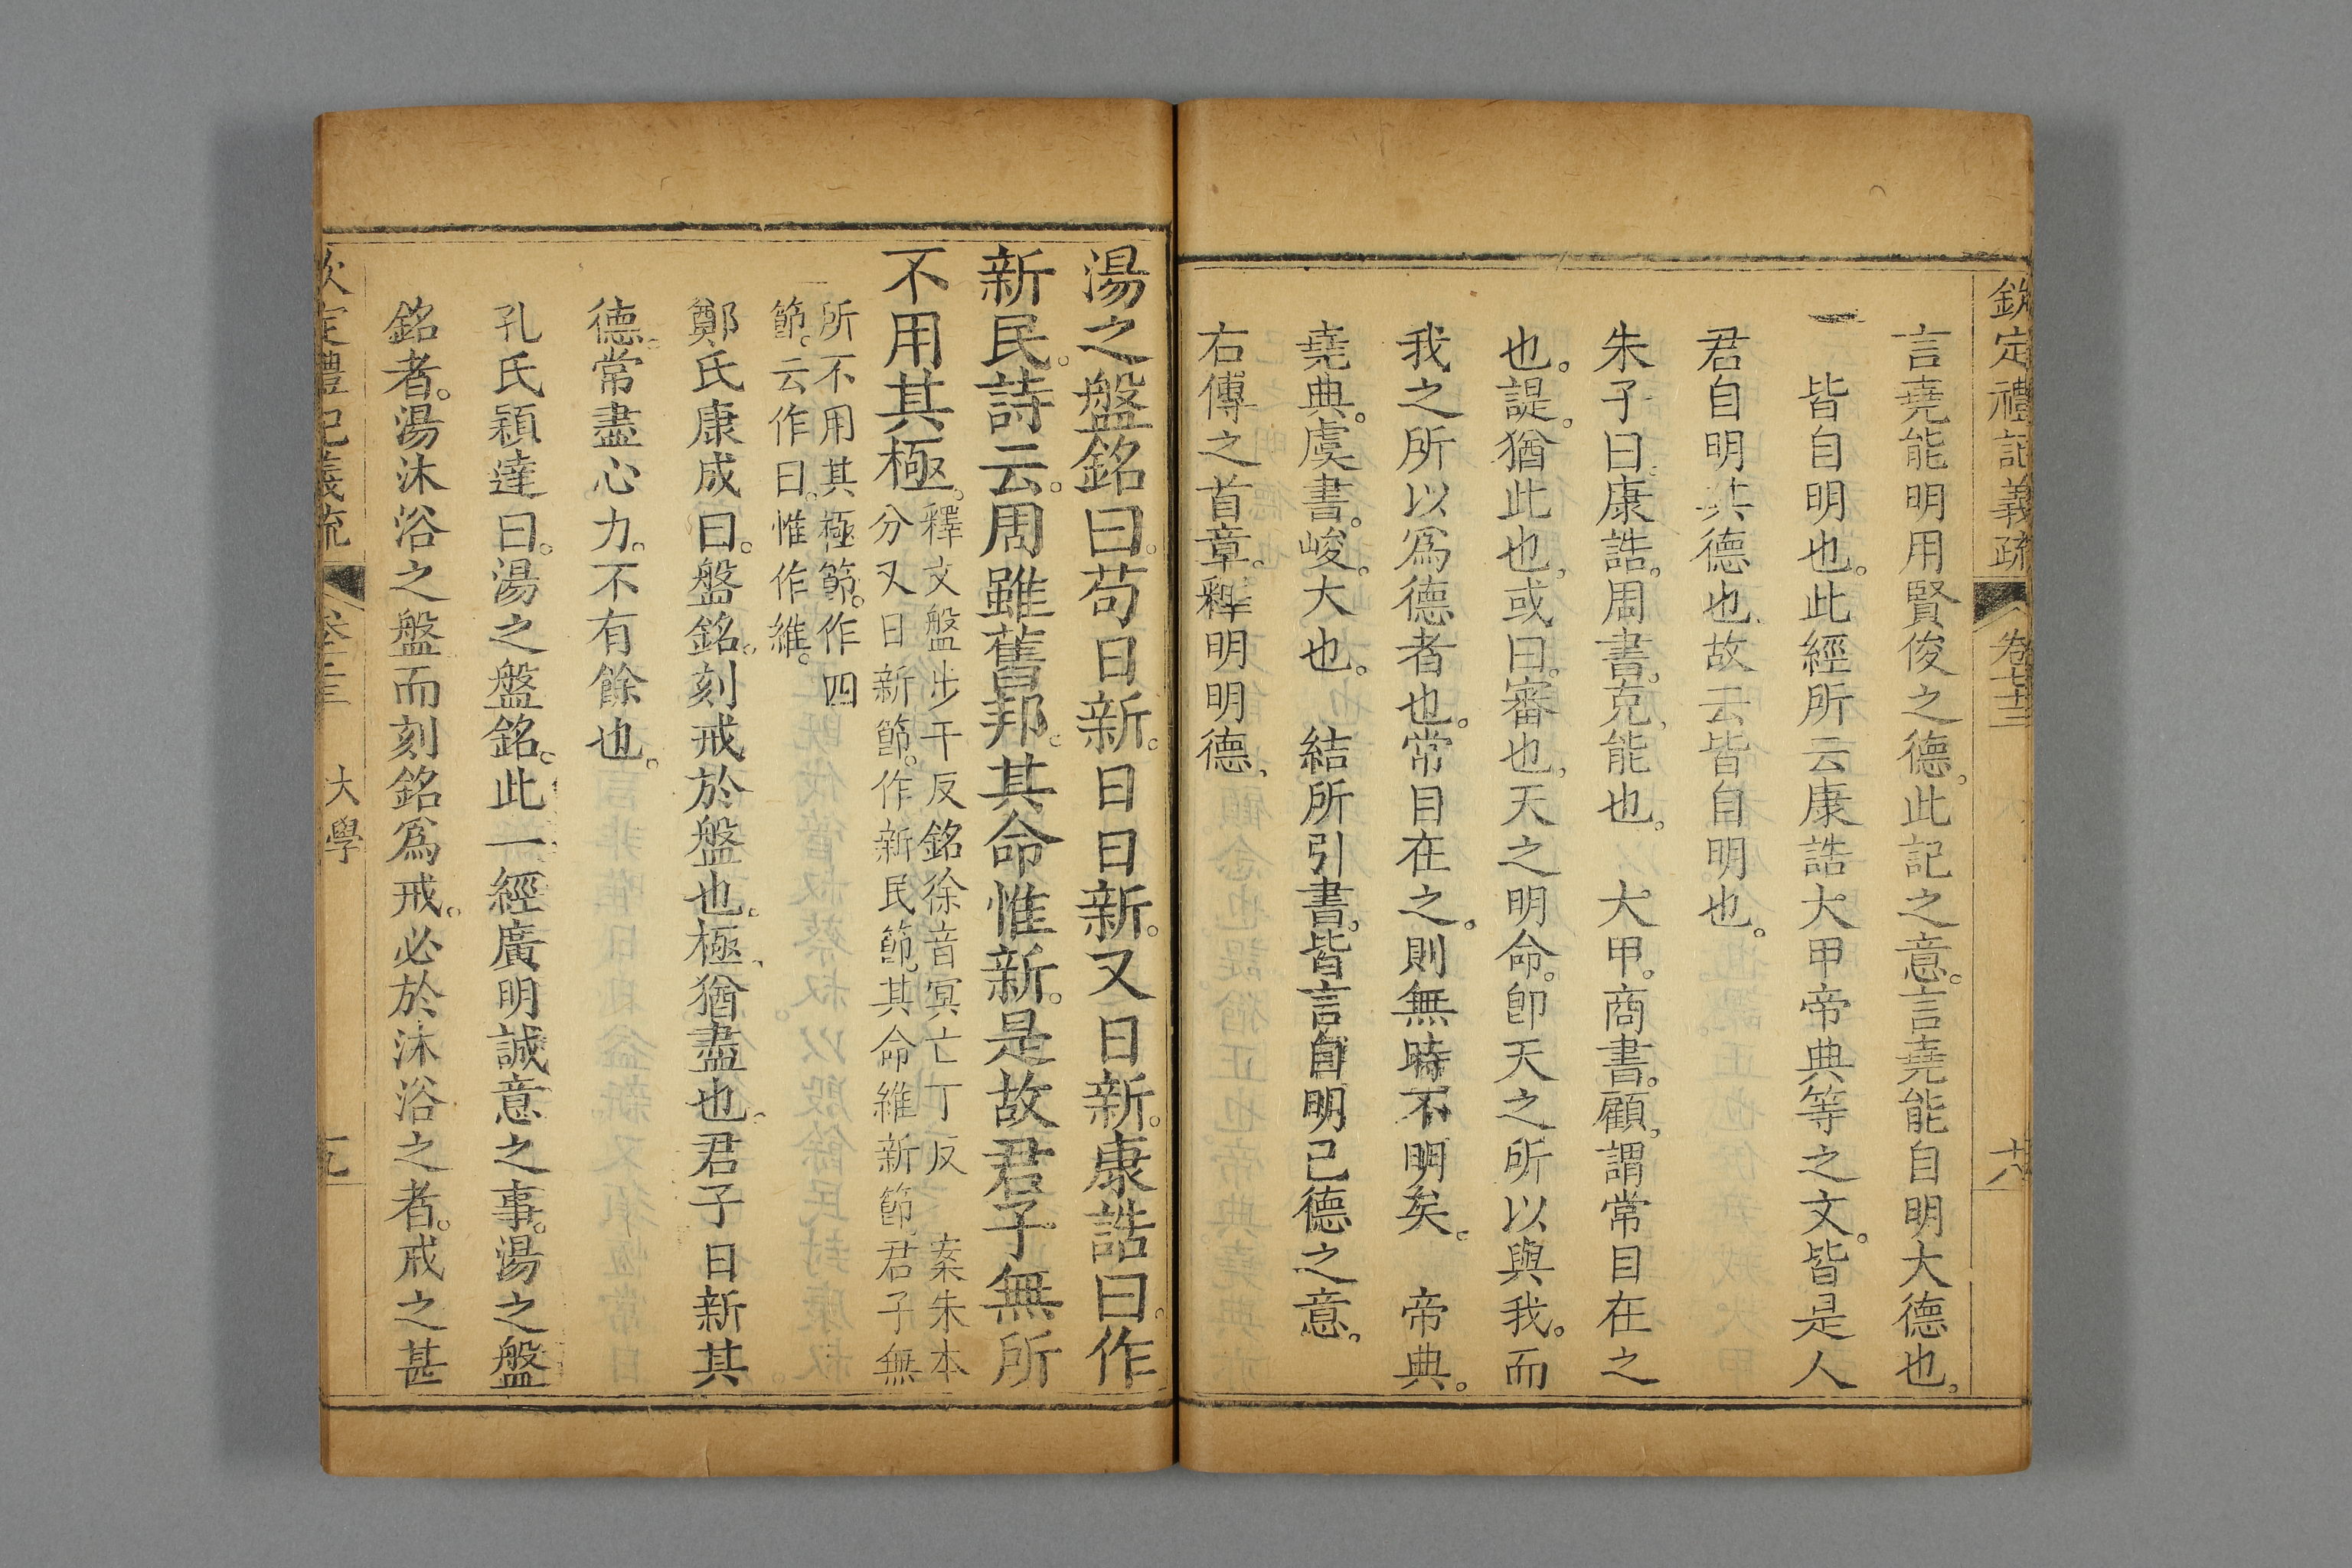 欽定禮記義疏 卷七十三 十八
言堯能明用賢俊之德。此記之意。言堯能自明大德也。
皆自明也。此經所云康誥大甲帝典等之文。皆是人
君自明其德也。故云皆自明也。
朱子曰。康誥。周書。克。能也。 大甲。商書。顧。謂常目在之
也。諟。猶此也。或曰。審也。天之明命。卽天之所以與我。而
我之所以爲德者也。常目在之。則無時不明矣。 帝典。
堯典。虞書。峻。大也。 結所引書。皆言自明己德之意。
右傳之首章。釋明明德。
湯之盤銘曰。苟日新。日日新。又日新。康誥曰。作
新民。詩云。周雖舊邦。其命惟新。是故君子無所
不用其極。
釋文盤步干反銘徐音冥亡丁反 案朱本
分又日新節。作新民節。其命維新節。君子無
所不用其極節。作四
節。云作曰。惟作維。
鄭氏康成曰。盤銘。刻戒於盤也。極。猶盡也。君子日新其
德。常盡心力。不有餘也。
孔氏穎達曰。湯之盤銘。此一經廣明誠意之事。湯之盤
銘者。湯沐浴之盤而刻銘爲戒。必於沐浴之者。戒之甚
定禮記義疏 大學